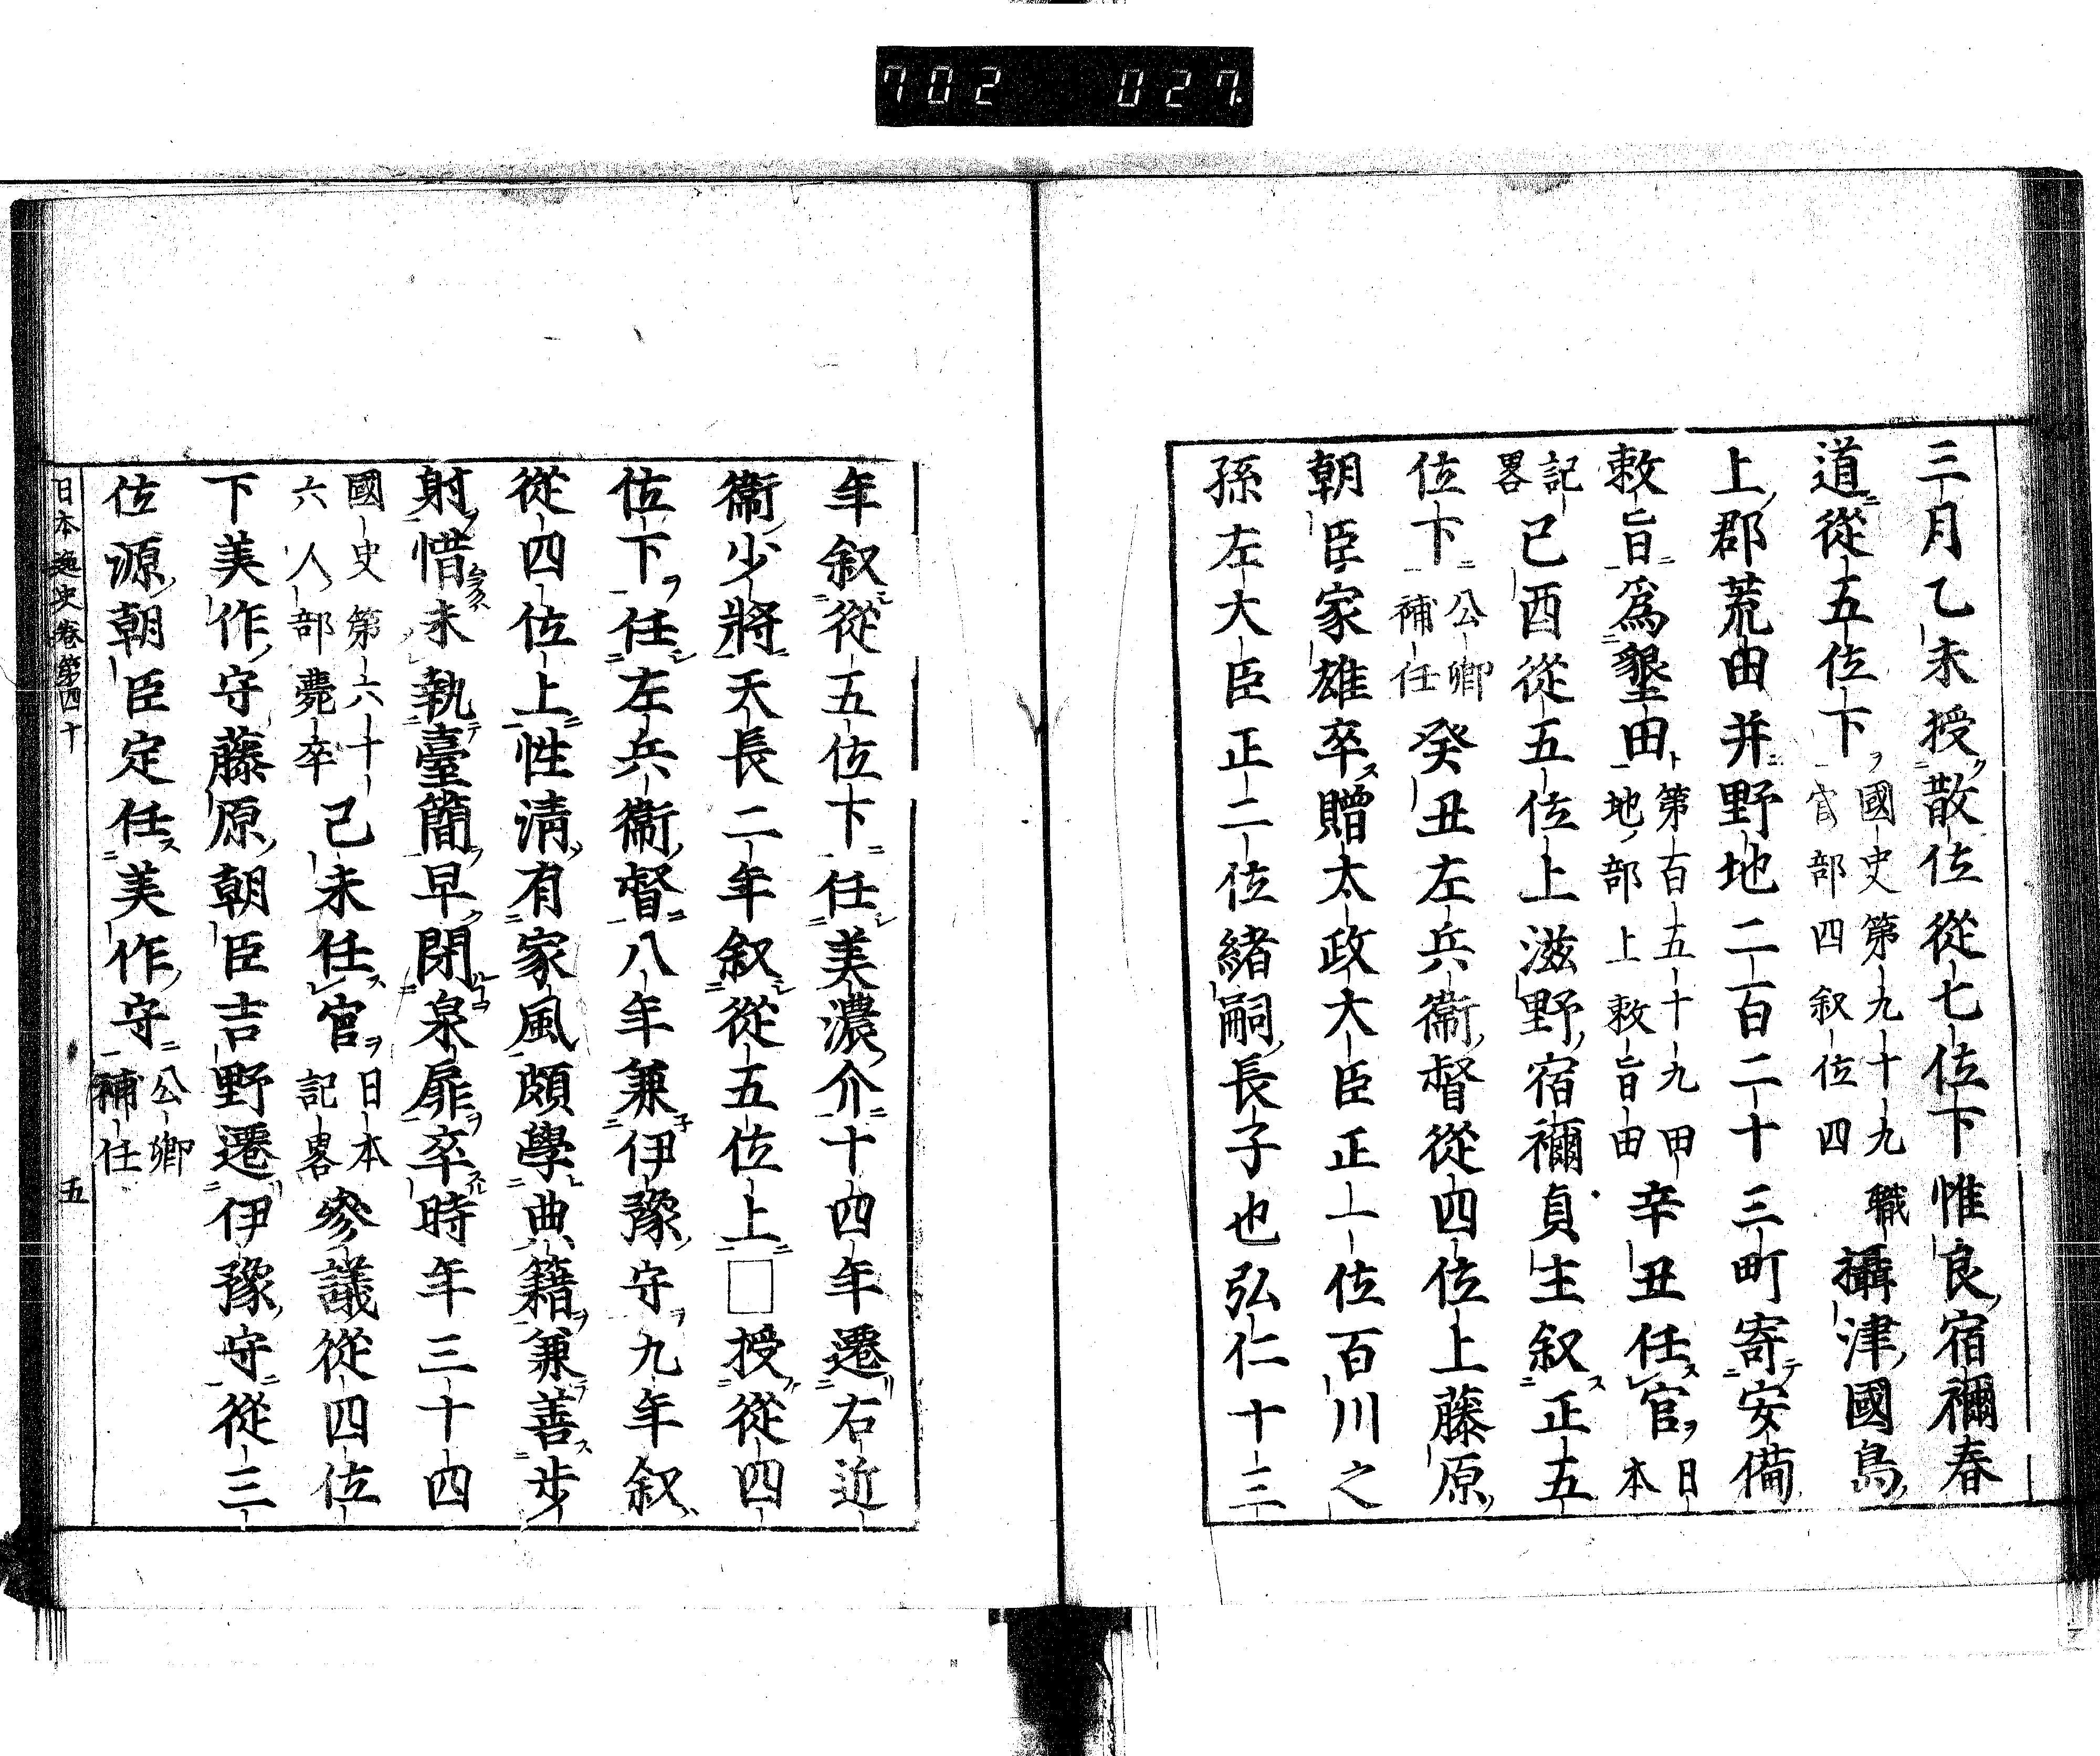 702 027
三月乙未授散位從七位下惟良宿禰春
道從五位下國史第九十九職官部四叙位四攝津國島
上郡荒田并野地二百二十三町寄安備
敕旨爲墾田第百五十九田地部上敕旨田辛丑任官日本
記畧己酉從五位上滋野宿禰貞主叙正五
位下公卿補任癸丑左兵衞督從四位上藤原
朝臣家雄卒贈太政大臣正一位百川之
孫左大臣正二位緒嗣長子也弘仁十三
年叙從五位下任美濃介十四年遷右近
衞少將天長二年叙從五位上□授從四
位下任左兵衞督八年兼伊豫守九年叙
從四位上性清有家風頗學典籍兼善步
射惜未執臺簡早閉泉扉卒時年三十四
國史第六十六人部薨卒己未任官日本記畧參議從四位
下美作守藤原朝臣吉野遷伊豫守從三
位源朝臣定任美作守公卿補任
日本逸史卷第四十 五